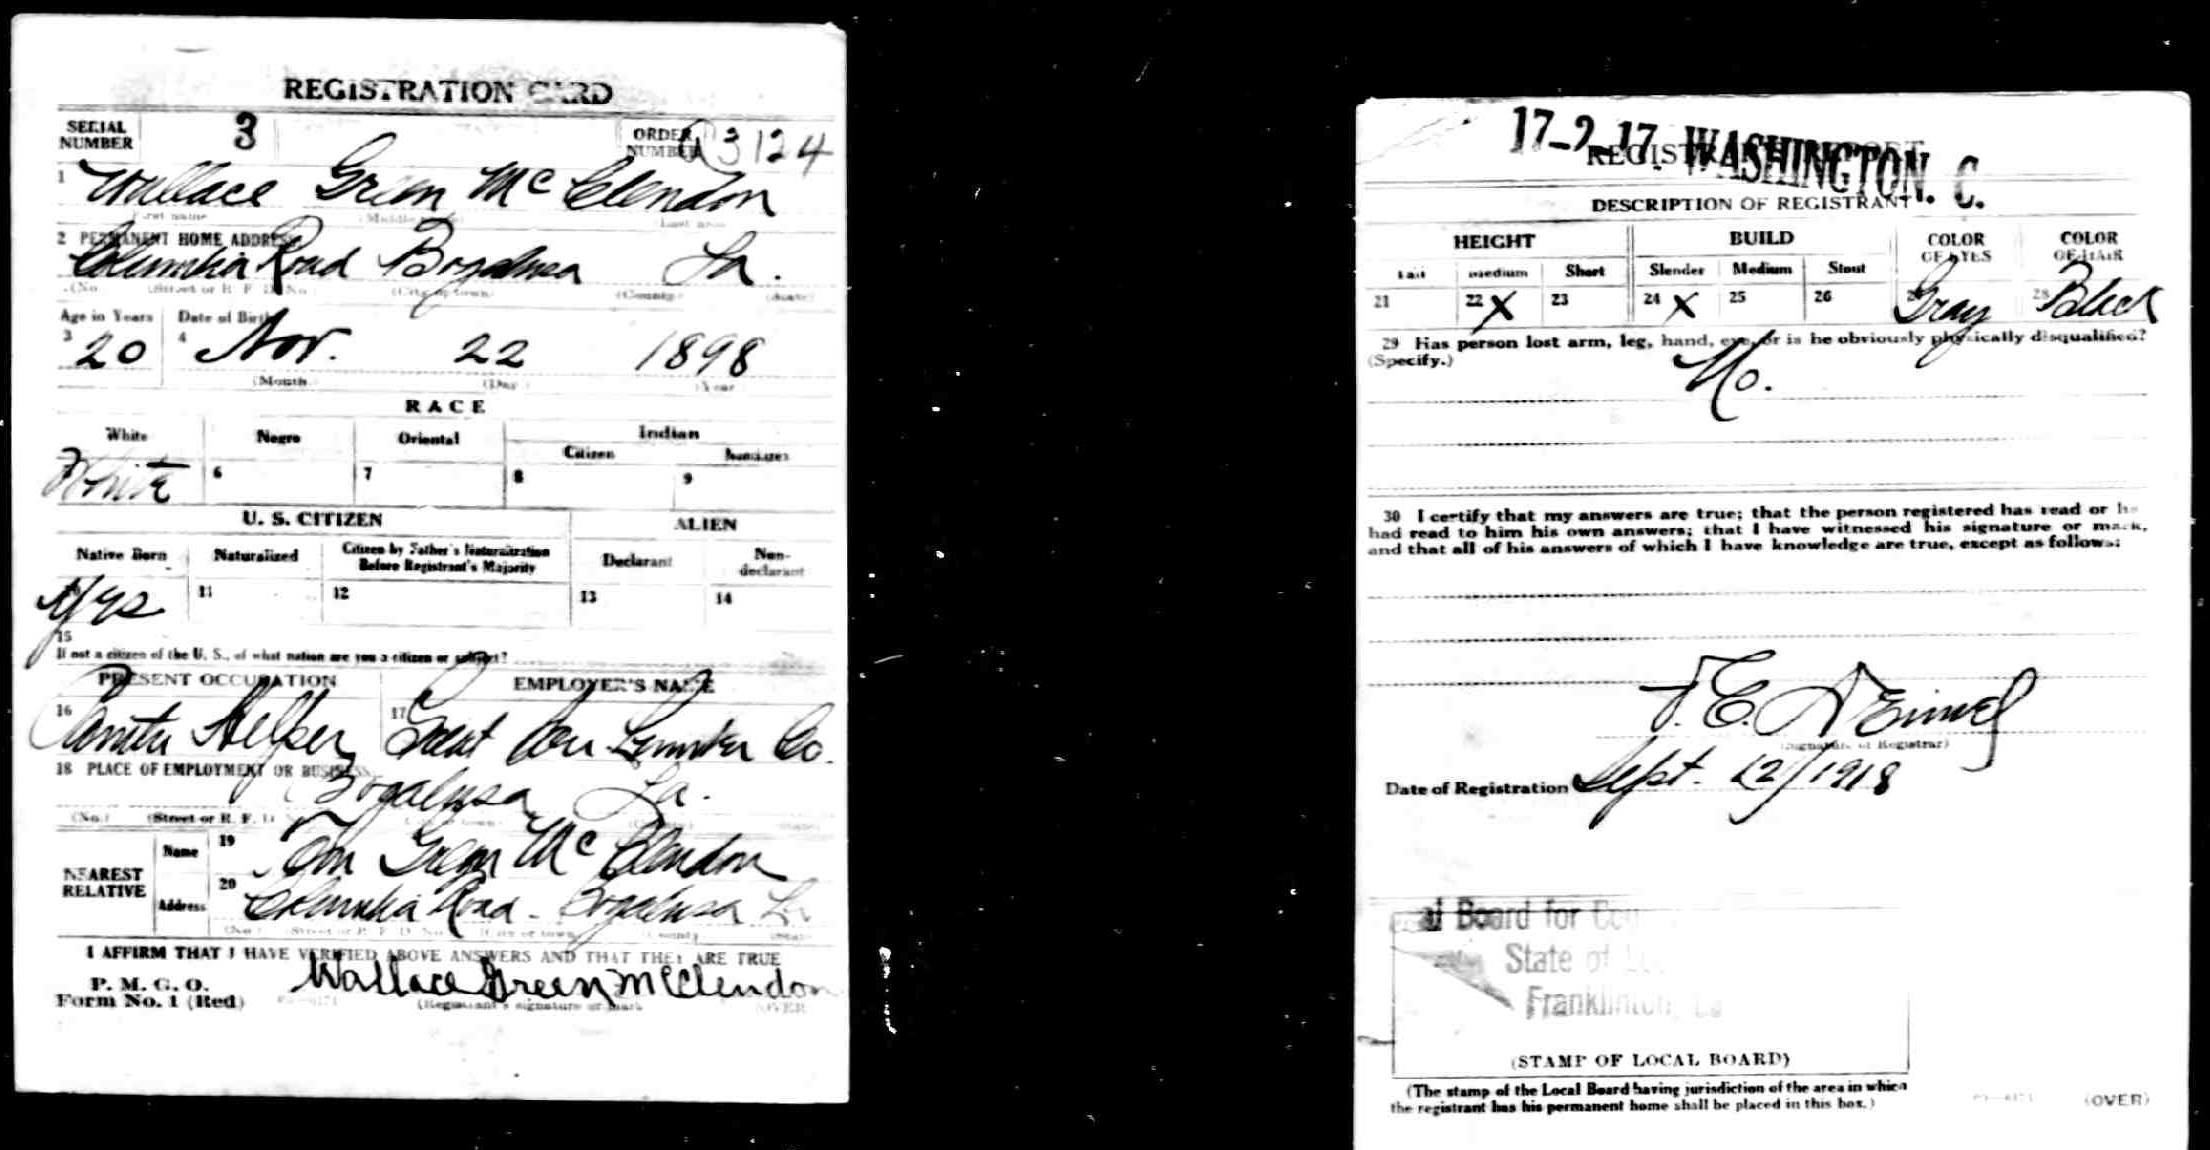 REGISTRATION CARD
SERIAL NUMBER 3 ORDER NUMBER 3124
1 Wallace Green McClendon
(First name) (Middle name) (Last name)
2 PERMANENT HOME ADDRESS
Columbia Road Bogalusa La.
(No.) (Street or R. F. D. No.) (City or town) (County) (State)
Age in Years Date of Birth
3 20 4 Nov. 22 1898
(Month) (Day) (Year)
RACE
White Negro Oriental Indian
Citizen Noncitizen
White 6 7 8 9
U. S. CITIZEN ALIEN
Native Born Naturalized Citizen by Father's Naturalization Before Registrant's Majority Declarant Non-declarant
10 Yes 11 12 13 14
15
If not a citizen of the U. S., of what nation are you a citizen or subject?
PRESENT OCCUPATION EMPLOYER'S NAME
16 Helper 17 Great Sou Lumber Co.
18 PLACE OF EMPLOYMENT OR BUSINESS
Bogalusa La.
(No.) (Street or R. F. D. No.) (City or town) (County) (State)
NEAREST RELATIVE
Name 19 Tom Green McClendon
Address 20 Columbia Road - Bogalusa La
(No.) (Street or R. F. D. No.) (City or town) (County) (State)
I AFFIRM THAT I HAVE VERIFIED ABOVE ANSWERS AND THAT THEY ARE TRUE
P. M. G. O.
Form No. 1 (Red) Wallace Green McClendon
(Registrant's signature or mark) (OVER)
17-2-17. WASHINGTON. C.
REGISTRAR'S REPORT
DESCRIPTION OF REGISTRANT
HEIGHT BUILD COLOR OF EYES COLOR OF HAIR
Tall Medium Short Slender Medium Stout
21 22 X 23 24 X 25 26 27 Gray 28 Black
29 Has person lost arm, leg, hand, eye, or is he obviously physically disqualified?
(Specify.) No.
30 I certify that my answers are true; that the person registered has read or has
had read to him his own answers; that I have witnessed his signature or mark,
and that all of his answers of which I have knowledge are true, except as follows:
(Signature of Registrar)
Date of Registration Sept. 12/1918
al Board for Cou
State of
Franklinton, La
(STAMP OF LOCAL BOARD)
(The stamp of the Local Board having jurisdiction of the area in which
the registrant has his permanent home shall be placed in this box.)
(OVER)